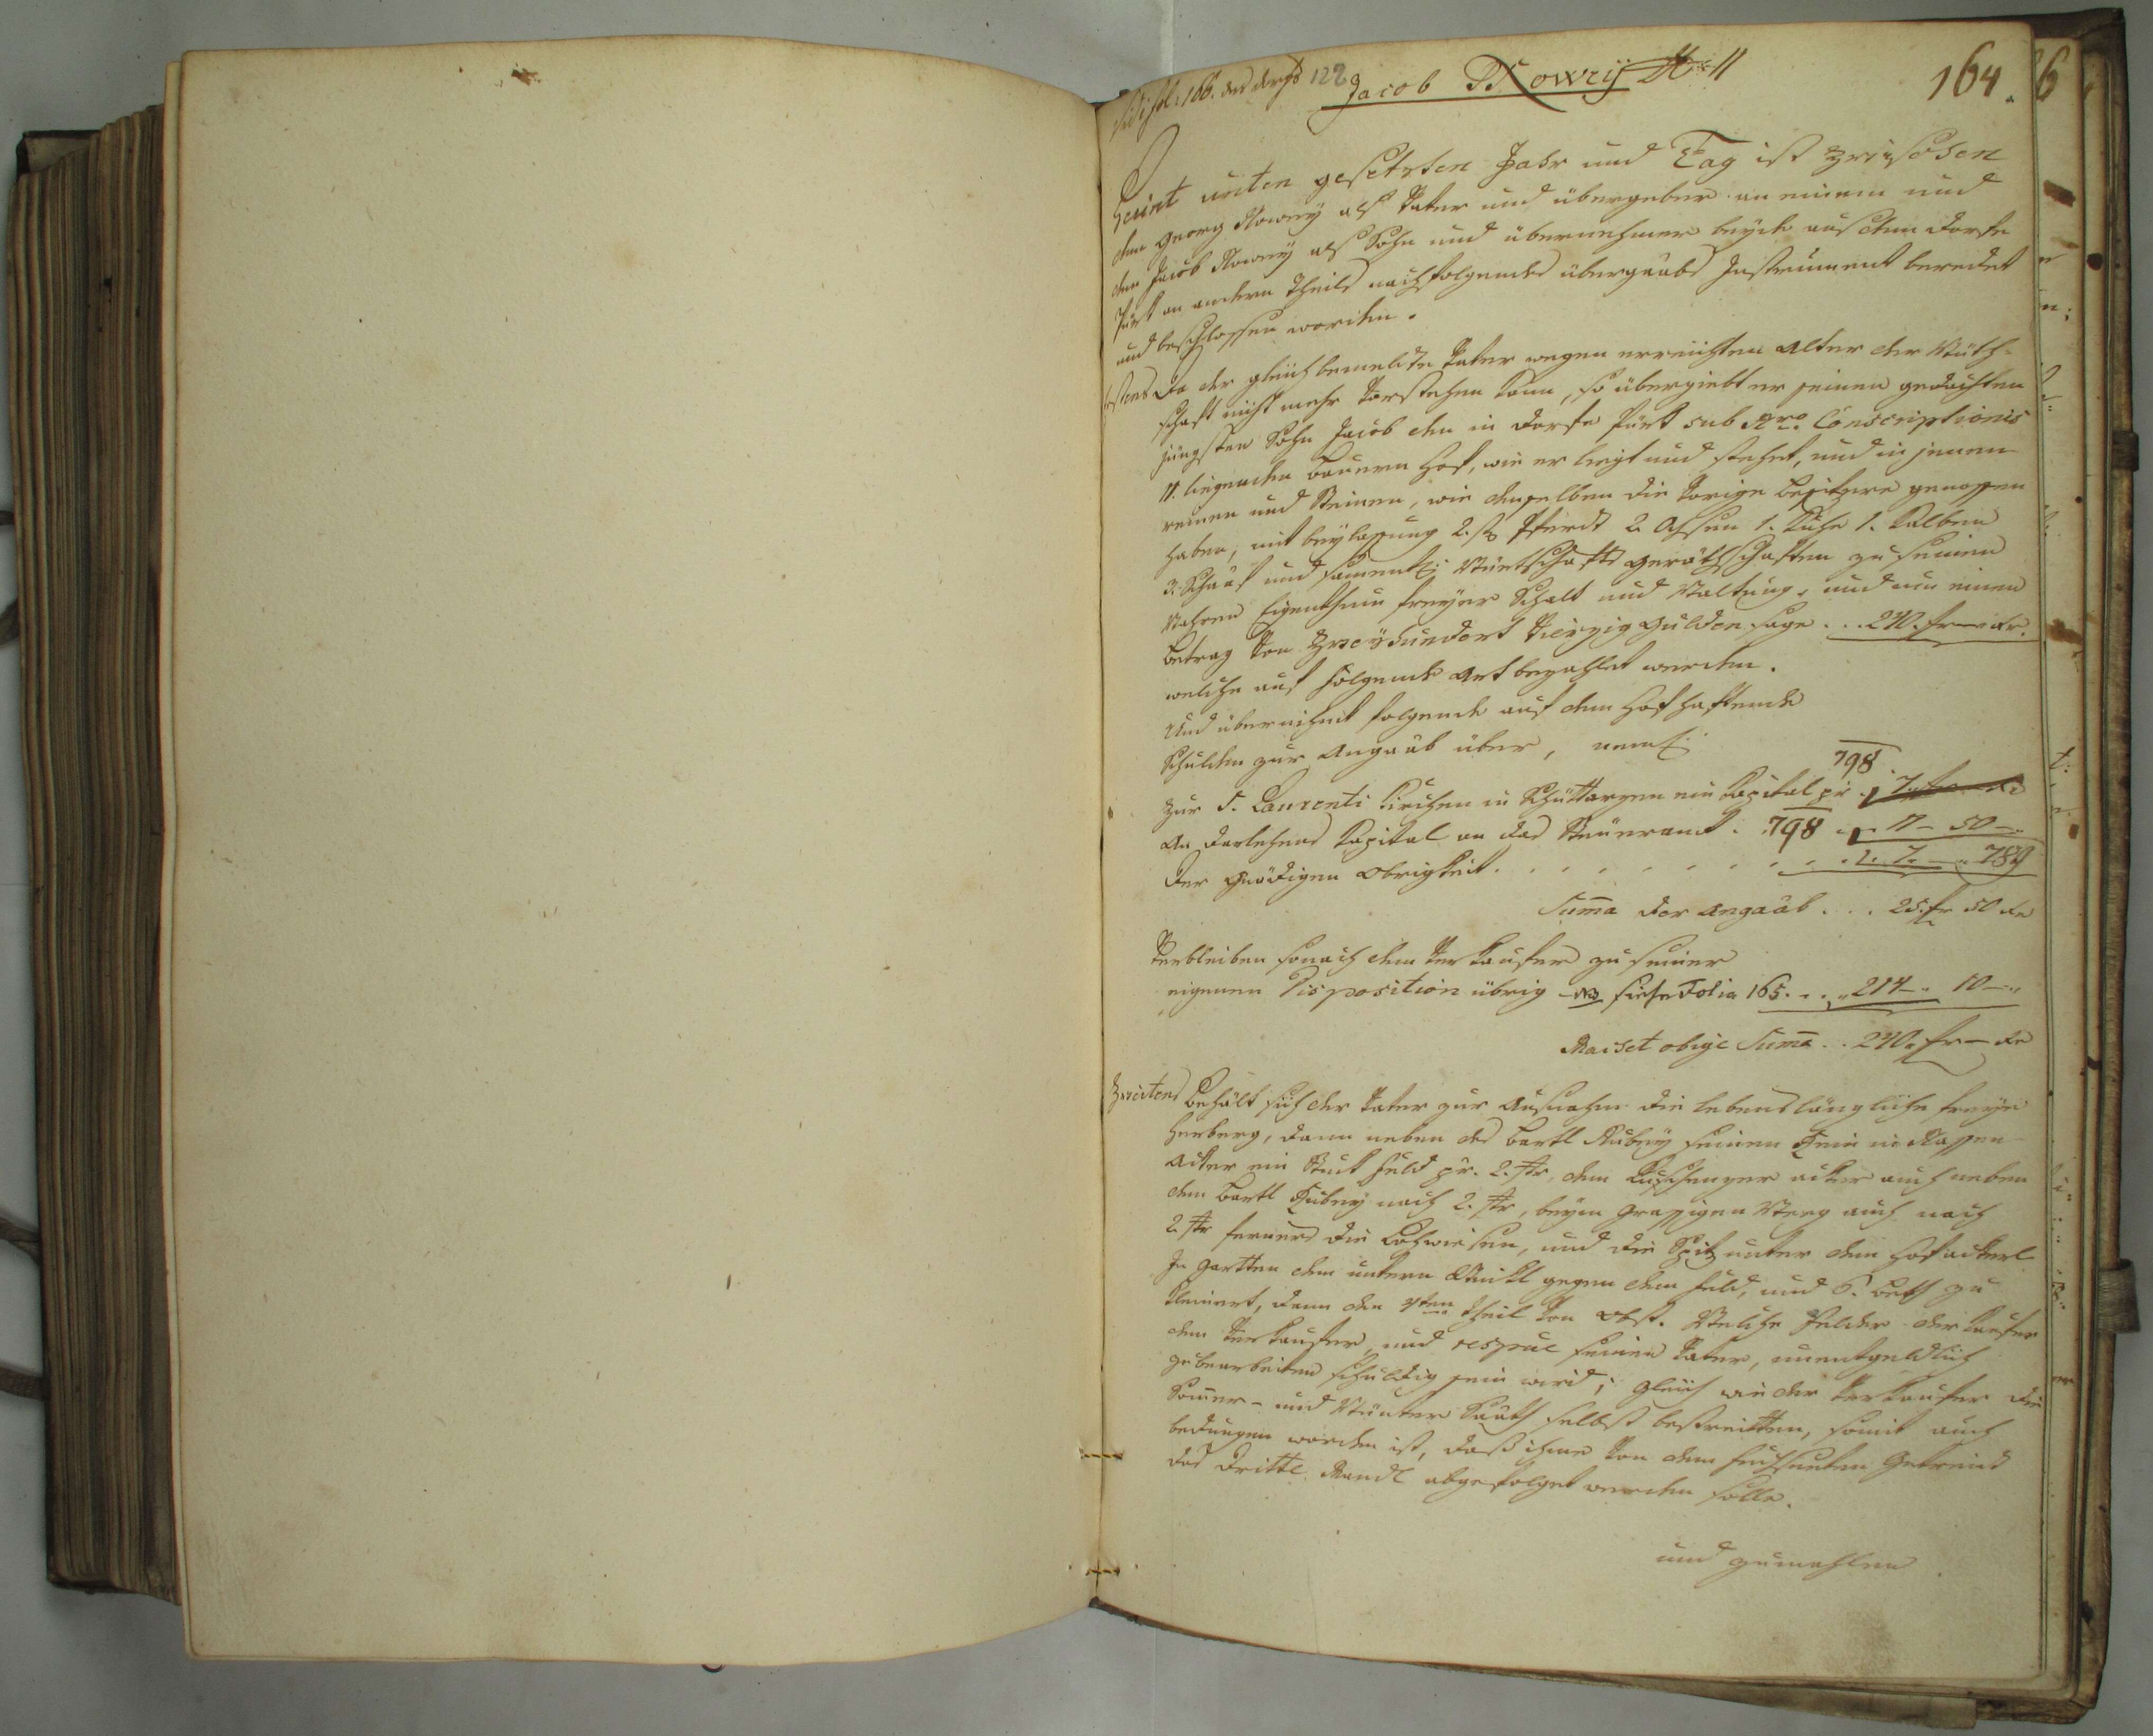 Vidi fol: 166. des dorfs 122
Jacob Nowy N 11
164.
Heünt unten gesetzten Jahr und Tag ist zwischen
dem Georg Nowy als Vater und übergeber an einem und
den Jacob Nowy als Sohn und übernehmer beyde aus dem Dorfe
an andern Theils nachfolgendes übergaabs Instrument beredet
und beschlossen worden.
Erstens Da der gleich bemeldte Vater wegen erreichten Alter der Würth-
schaft nicht mehr vorstehen kann, so übergiebt er seinen gedachten
jüngsten Sohn Jacob den in Dorfe sub Nro. Conscriptionis
11. liegenden Bauern Hof, wie er liegt und stehet, und in jenen
reinen und Steinen, wie denselben die vorige Besitzere genossen
haben, mit beylassung 2. st. Pferdt 2. Ochsen 1. Kuhe 1. Kalben
3. Schaaf und samentl: Würtschafts geräthschaften zu seinen
Wahren Eigenthum freyer Schalt und Waltung, und um einen
betrag von Zweyhundert Vierzig Gulden sage . . . 240. fr — kr.
welche auf folgende Art bezahlet werden.
Und übernihmt folgende auf dem Hof haftende
Schulden zur Angaab über, neml:
798
Zur S. Laurenti Kirchen in ein Capital pr . 7. fr — kr
An darlehens Capital an das Steueramt . 798 . 11 — 50 — "
Der Gnädigen Obrigkeit . . . . . . . . . . 7. — " 789
Suma der angaab . . . 25. fr 50 kr
Verbleiben sonach dem Verkaufer zu seiner
eigenen Disposition übrig NB siehe Folia 165. . . " 214 — " 10 — "
Waiset obige Suma . . 240. fr — kr
Zweitens Behält sich der Vater zur Ausnahm die lebenslängliche freye
Herberg, dann neben des Bartl Kubey seinen Rein in Wassen
Acker ein Stuck feld pr. 2. str, dem acker auch neben
dem Bartl Kubey nach 2. str, beym grassigen Weeg auch nach
2 str ferners die Lohwiesen, und die Spitz unter dem Hofackerl
In Gartten den untern Winkl gegen dem feld, und 6. Beth zu
dann den 4ten theil von Obst. Welche Felder der Kaufer
dem Verkaufer, und respue seinen Vater, unentgeldlich
zu bearbeiten schuldig sein wird; gleich wie der Verkaufer die
Somer- und Wünter Saath selbst bestreitten, somit auch
bedungen worden ist, daß ihme von dem Getreid
das dritte Mandl abgefolget werden solle.
und zumahlen